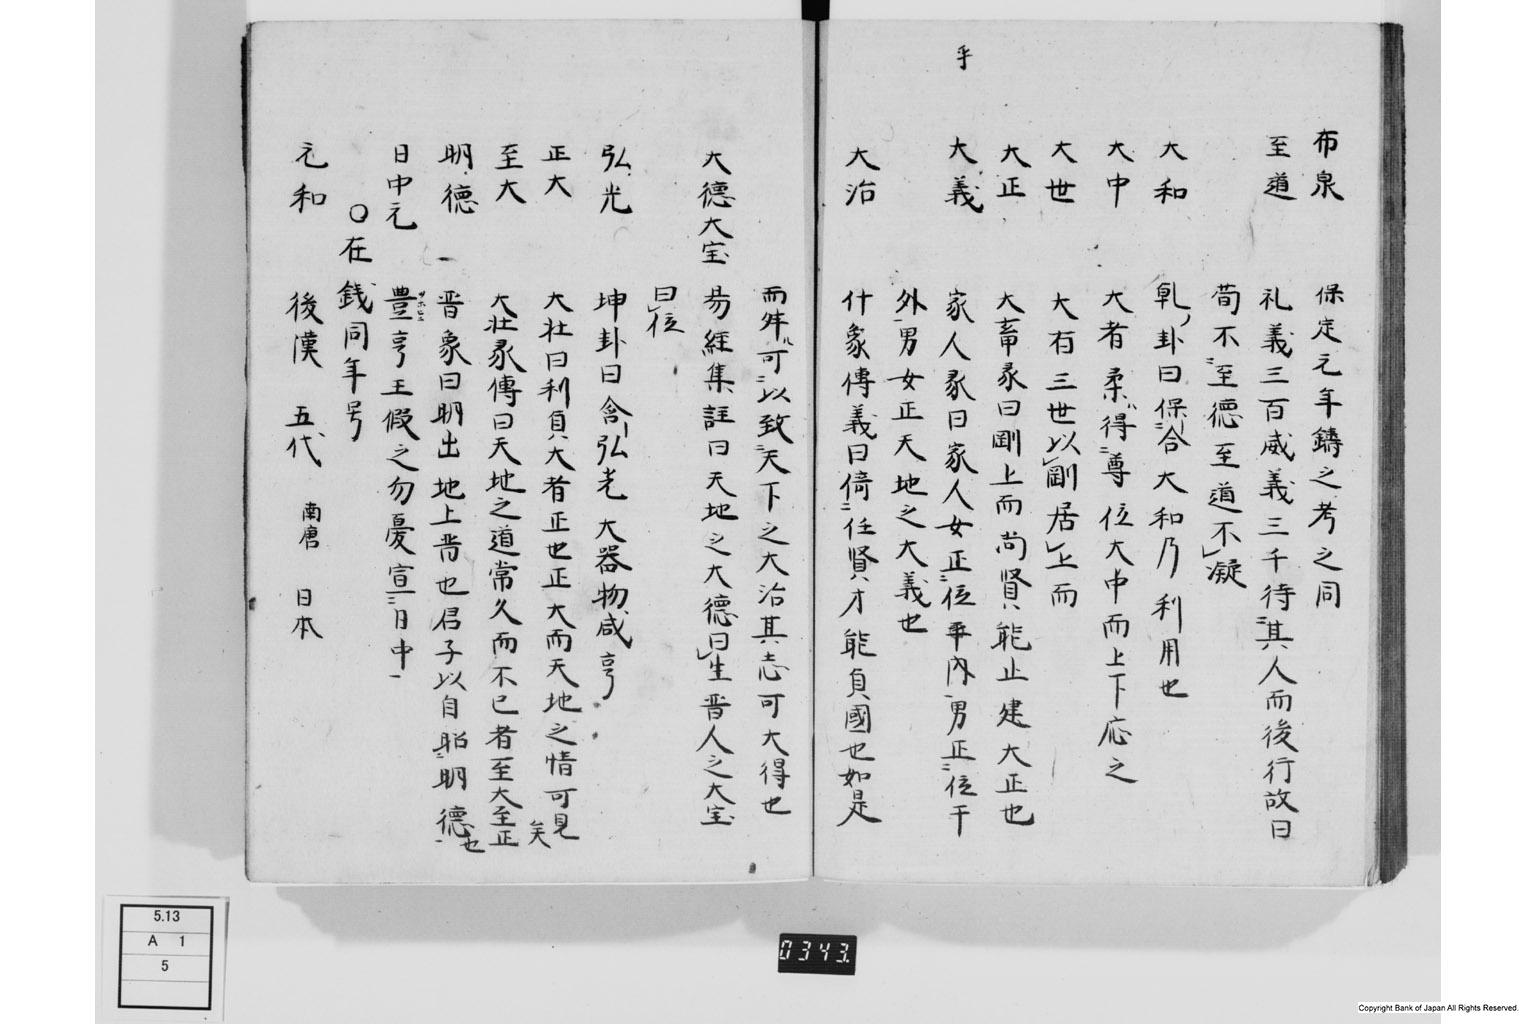 乎
布泉 保定元年鑄之考之同
至道 礼義三百威義三千待其人而後行故曰
荀不至德至道不凝
大和 乹卦曰保合大和乃利用也
大中 大者柔得尊位大中而上下応之
大世 大有三世以剛居上而
大正 大畜彖曰剛上而尚賢能止建大正也
大義 家人彖曰家人女正位乎內男正位干
外男女正天地之大義也
大治 什象傳義曰倚任賢才能負國也如是
而・可以致天下之大治其志可大得也
大德大宝 易經集註曰天地之大德曰生晋人之大宝
曰位
弘光 坤卦曰含弘光大器物咸亨
正大 大壮曰利負大者正也正大而天地之情可見矣
至大 大壮彖傳曰天地之道常久而不已者至大至正
明德 晋象曰明出地上晋也启子以自昭明德也
日中元 豊亨王假之勿憂宣日中
○在錢同年号
元和 後漢 五代 南唐 日本
5.13
A 1
5
0343.
Copyright Bank of Japan All Rights Reserved.